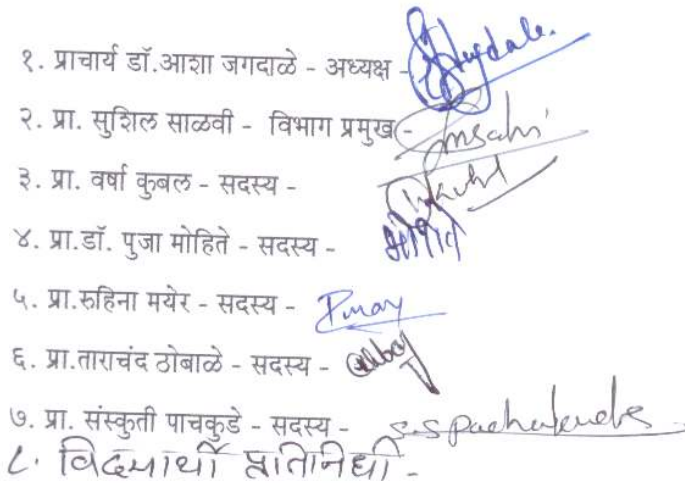 १. प्राचार्य डॉ.आशा जगदाळे - अध्यक्ष -
२. प्रा. सुशिल साळवी - विभाग प्रमुख -
३. प्रा. वर्षा कुबल - सदस्य -
४. प्रा.डॉ. पुजा मोहिते - सदस्य -
५. प्रा.रुहिना मयेर - सदस्य -
६. प्रा.ताराचंद ठोबाळे - सदस्य -
७. प्रा. संस्कुती पाचकुडे - सदस्य -
८. विद्यार्थी प्रतिनिधी -